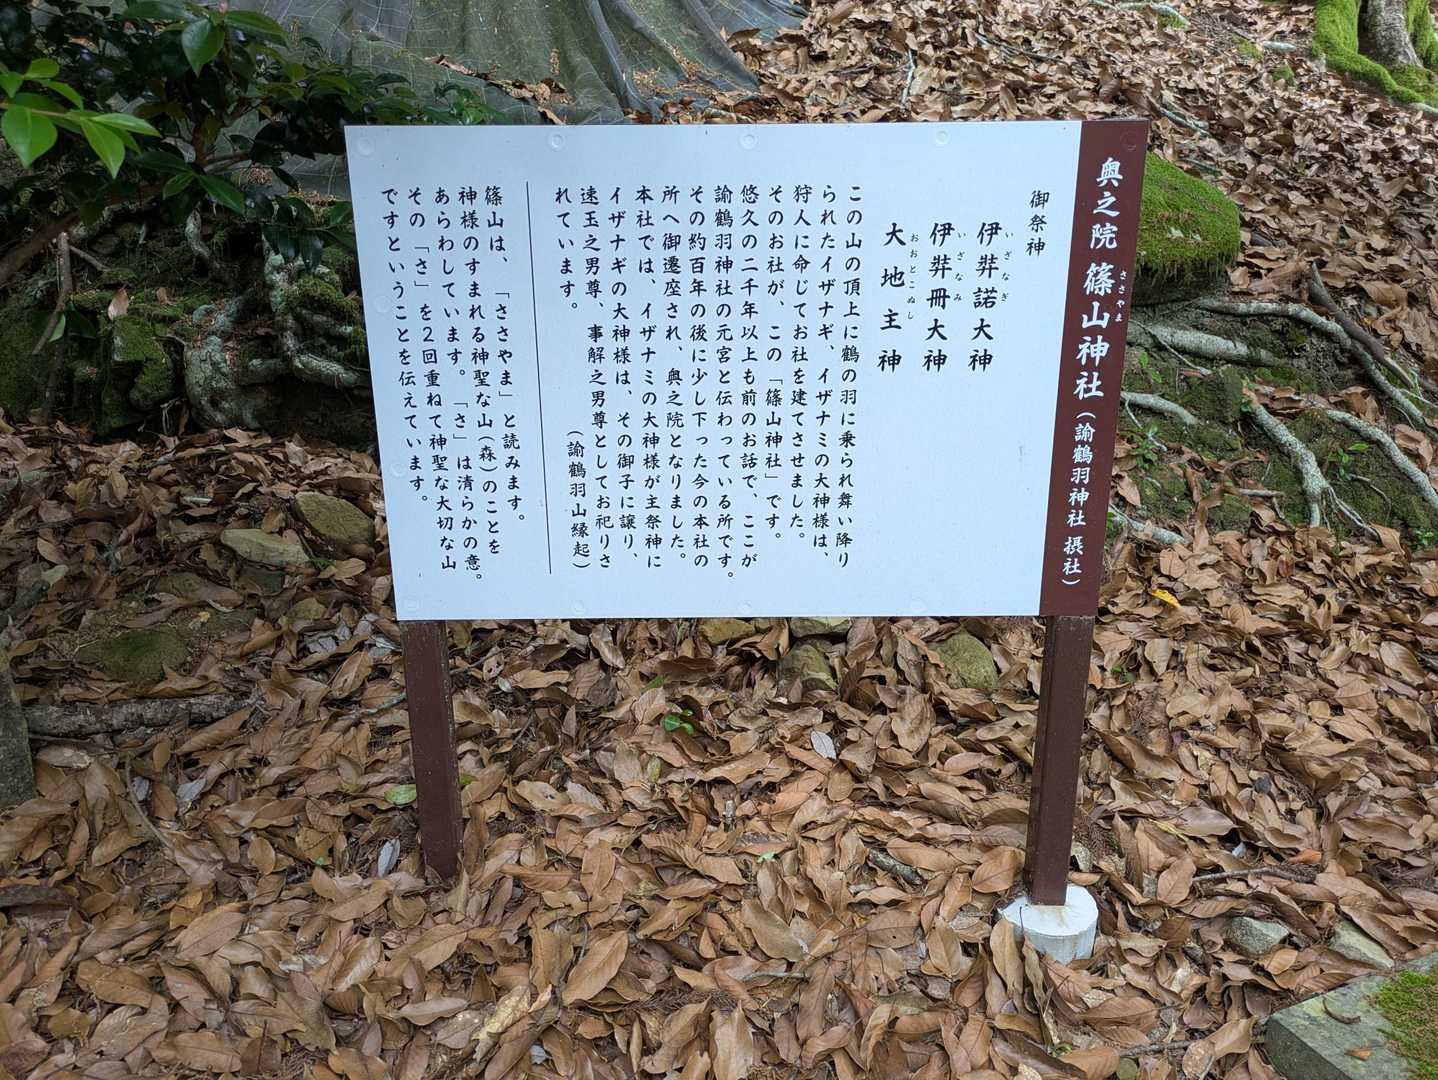 奥之院 篠山神社(諭鶴羽神社 摂社)
ささやま
御祭神
伊弉諾大神
いざなぎ
伊弉冊大神
いざなみ
大地主神
おおとこぬし
この山の頂上に鶴の羽に乗られ舞い降り
られたイザナギ、イザナミの大神様は、
狩人に命じてお社を建てさせました。
そのお社が、この「篠山神社」です。
悠久の二千年以上も前のお話で、ここが
諭鶴羽神社の元宮と伝わっている所です。
その約百年の後に少し下った今の本社の
所へ御遷座され、奥之院となりました。
本社では、イザナミの大神様が主祭神に
イザナギの大神様は、その御子に譲り、
速玉之男尊、事解之男尊としてお祀りさ
れています。
(諭鶴羽山縁起)
篠山は、「ささやま」と読みます。
神様のすまれる神聖な山(森)のことを
あらわしています。「さ」は清らかの意。
その「さ」を2回重ねて神聖な大切な山
ですということを伝えています。